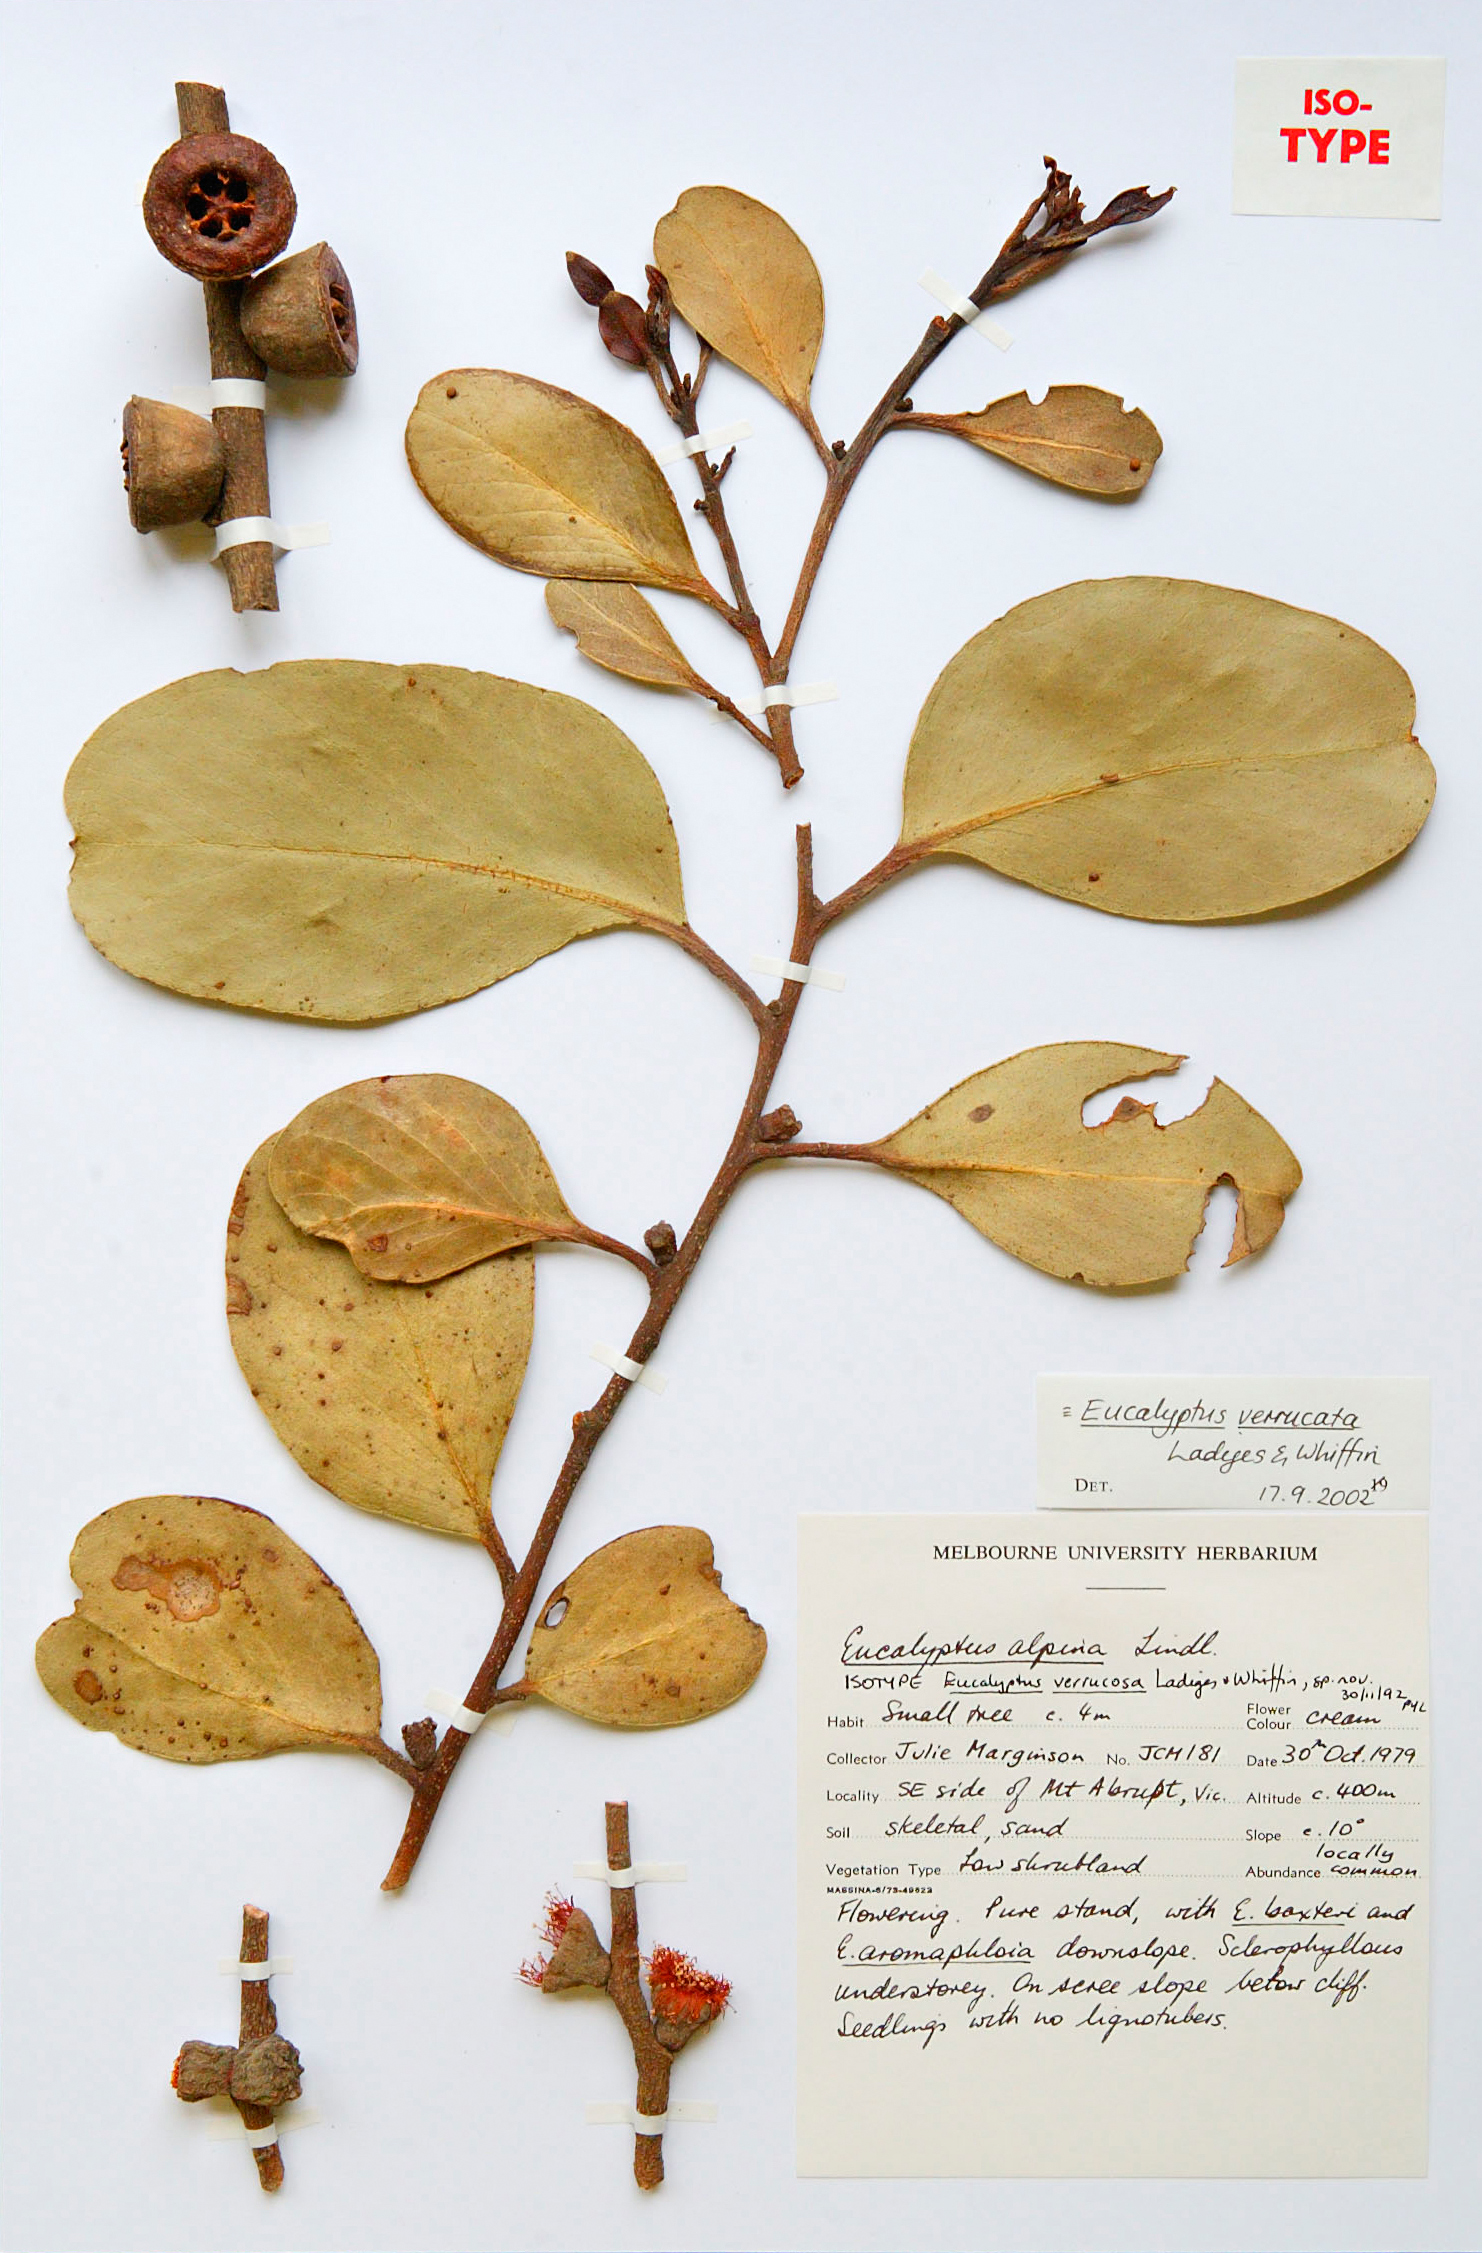 ISO-
TYPE
≡ Eucalyptus verrucata
Ladiges & Whiffin
DET. 17.9.2002
MELBOURNE UNIVERSITY HERBARIUM
Eucalyptus alpina Lindl.
ISOTYPE Eucalyptus verrucosa Ladiges & Whiffin, sp. nov.
30/11/92 PYL
Habit Small tree c. 4m Flower Colour cream
Collector Julie Marginson No. JCM181 Date 30th Oct. 1979
Locality SE side of Mt Abrupt, Vic. Altitude c. 400m
Soil skeletal, sand Slope c. 10°
Vegetation Type Low shrubland Abundance locally common
MASSINA-6/73-49623
Flowering. Pure stand, with E. baxteri and
E. aromaphloia downslope. Sclerophyllous
understorey. On scree slope below cliff.
Seedlings with no lignotubers.